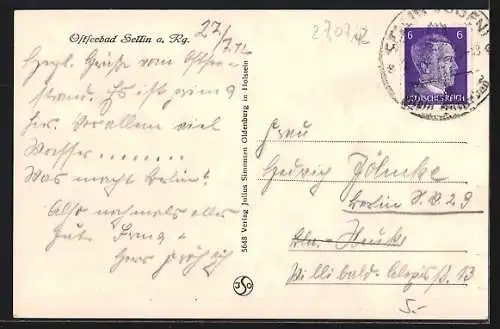 Ostseebad Sellin a. Rg.
27/7.42
27.07.42
Herzl. Grüße vom Ostsee-
strand. Es ist prima
hier. Vor allem viel
Wasser..........
Was macht Berlin?
Also nochmals alles
Gute
Herz
5648 Verlag Julius Simonsen Oldenburg in Holstein
JSO
6 6
DEUTSCHES REICH
SELLIN (RÜGEN)
Frau
Hedwig
Berlin S.W. 29
Willibald-Alexis Str. 13
5.-